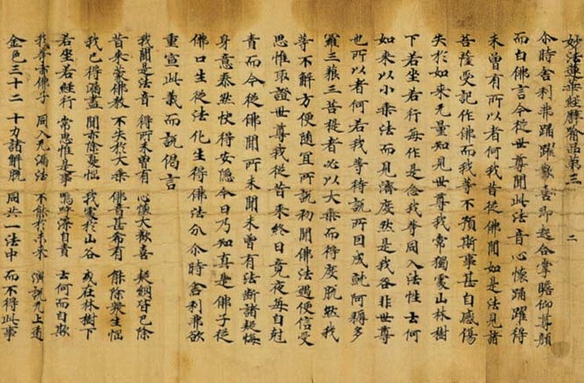 妙法蓮華經譬喻品第三 二
尒時舍利弗踊躍歡喜即起合掌瞻仰尊顏
而白佛言今從世尊聞此法音心懷踊躍得
未曾有所以者何我昔從佛聞如是法見諸
菩薩受記作佛而我等不預斯事甚自感傷
失於如来无量知見世尊我常獨處山林樹
下若坐若行每作是念我等同入法性云何
如来以小乘法而見濟度是我等咎非世尊
也所以者何若我等待說所因成就阿耨多
羅三藐三菩提者必以大乘而得度脫然我
等不解方便隨宜所說初聞佛法遇便信受
思惟取證世尊我從昔来終日竟夜每自剋
責而今從佛聞所未聞未曾有法斷諸疑悔
身意泰然快得安隱今日乃知真是佛子從
佛口生從法化生得佛法分尒時舍利弗欲
重宣此義而說偈言
我聞是法音 得所未曾有 心懷大歡喜 疑網皆已除
昔来蒙佛教 不失於大乘 佛音甚希有 能除衆生惱
我已得漏盡 聞亦除憂惱 我處於山谷 或在林樹下
若坐若經行 常思惟是事 嗚呼深自責 云何而自欺
我等亦佛子 同入无漏法 不能於未来 演說无上道
金色三十二 十力諸解脫 同共一法中 而不得此事